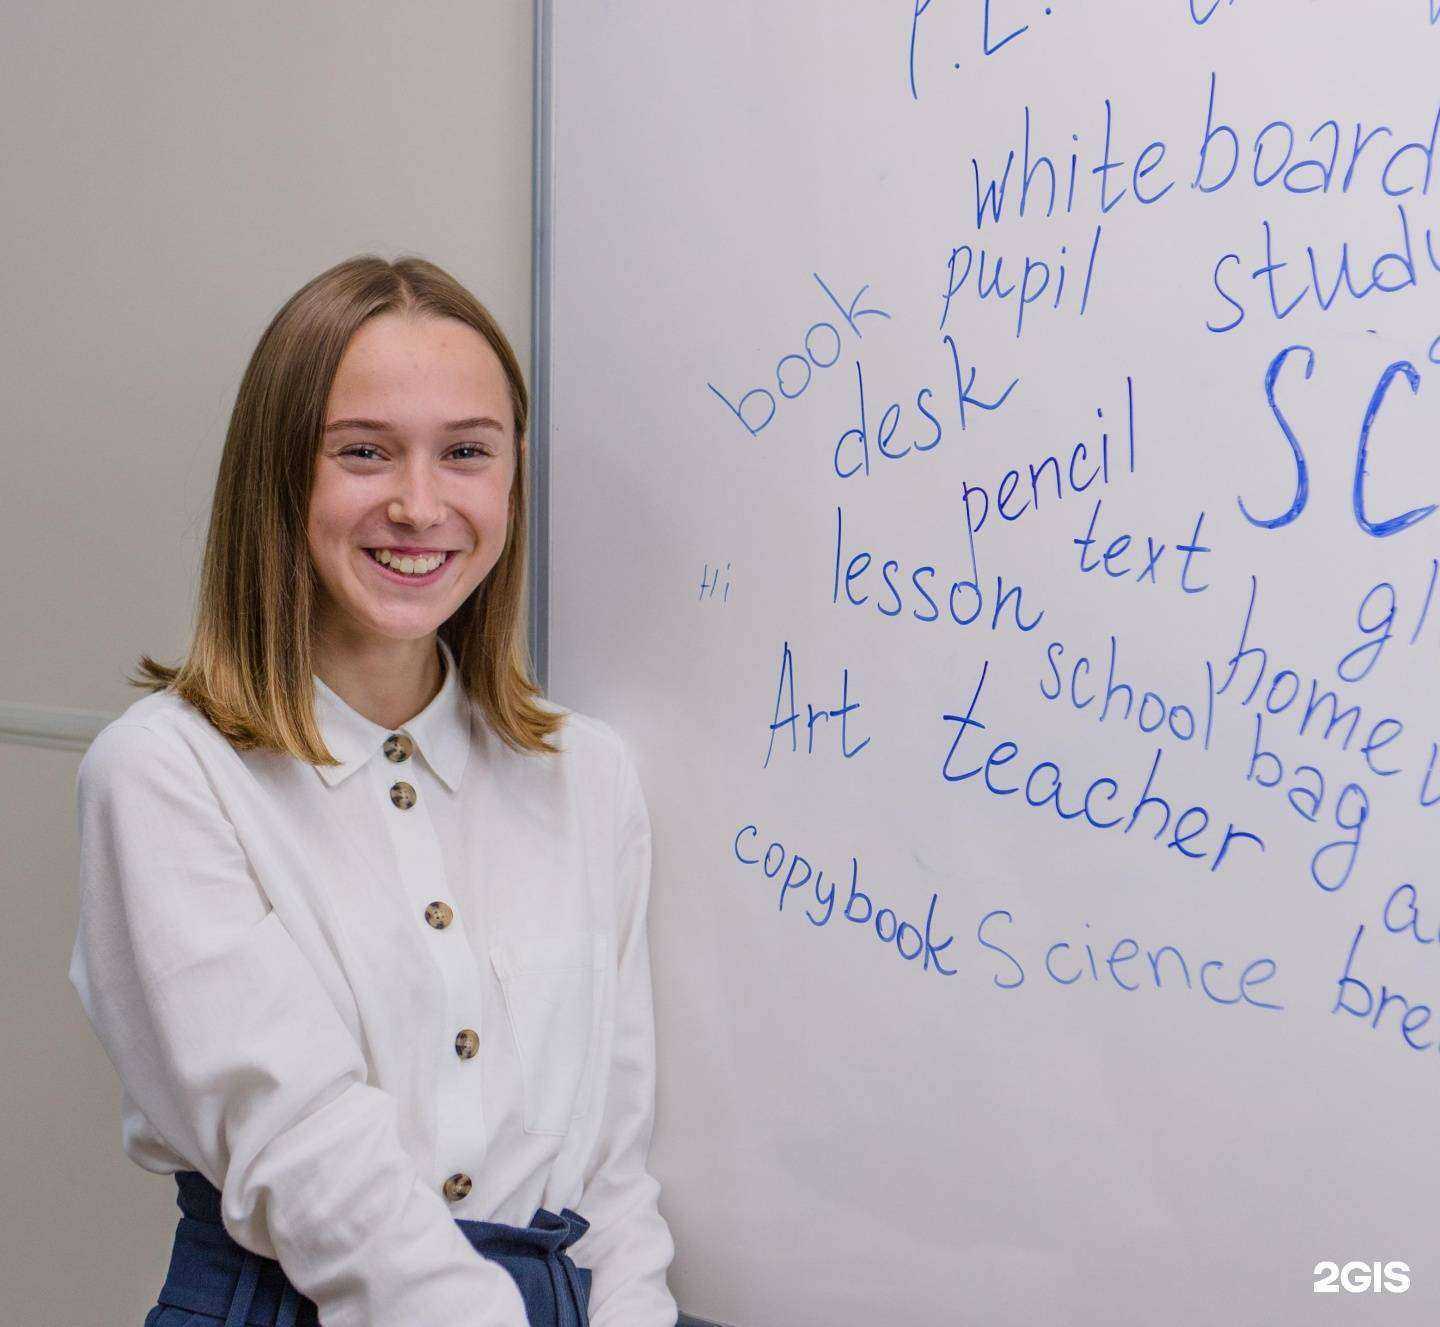 P.E.
whiteboard
pupil study
book
desk
SC
pencil
text
lesson
Hi
gl
school home
Art teacher
bag
copybook
Science bre
2GIS